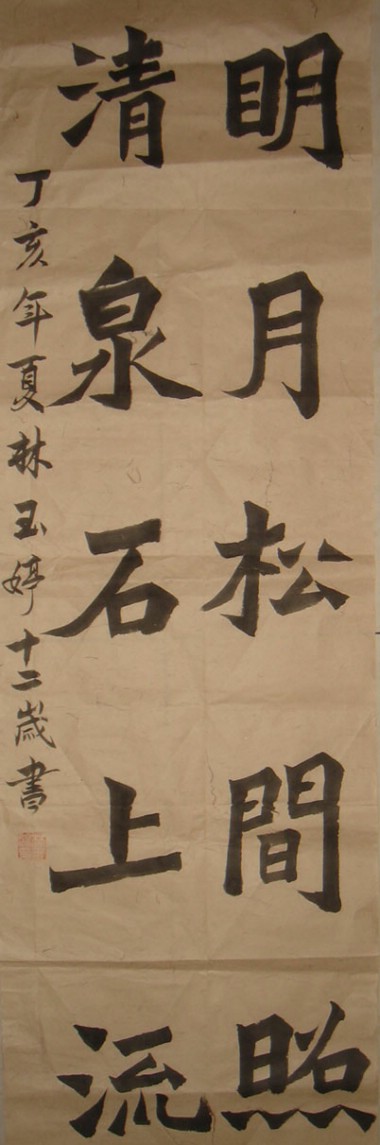 明月松間照
清泉石上流
丁亥年夏林玉婷十二歲書